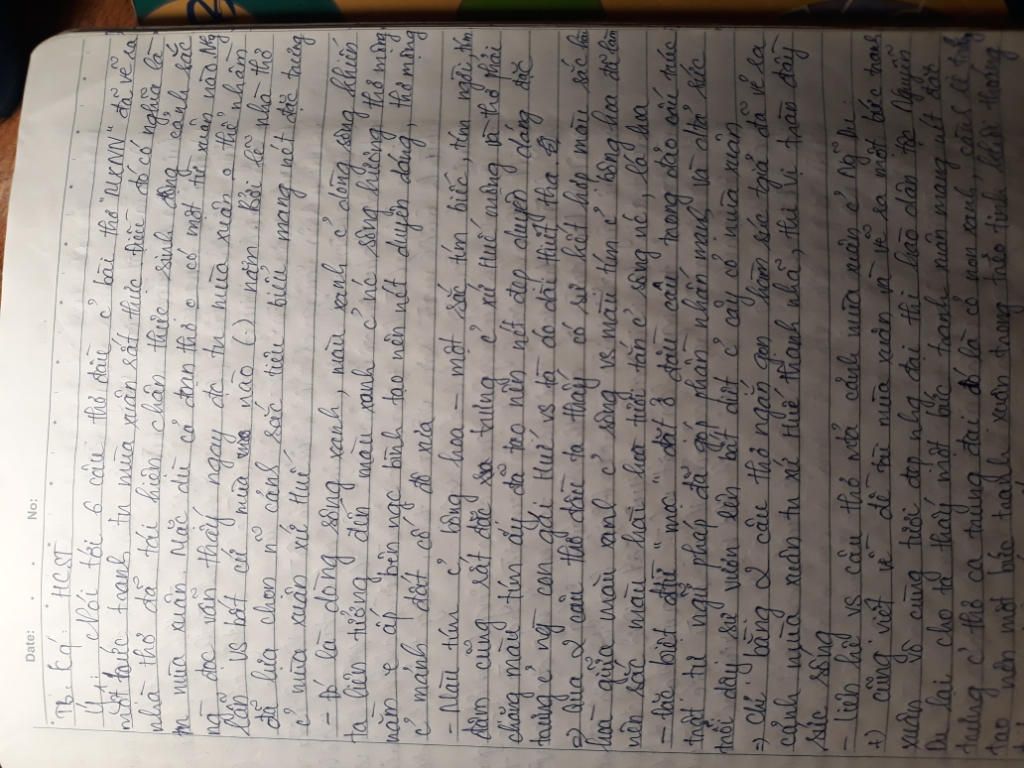 Date: No:
Tb: Kq: HCST
Ý1: Nói tới 6 câu thơ đầu c̉ bài thơ "MXNN" đã vẽ ra
một bức tranh tn mùa xuân
nhà thơ đã tái hiện chân thực sinh động cảnh sắc
tn mùa xuân. Mặc dù cả đoạn thơ c có một từ xuân nào
ng đọc vẫn thấy ngay đc tn mùa xuân
lẫn vs bất cứ mùa nào () năm. Bởi lẽ nhà thơ
đã lựa chọn n̉ cảnh sắc tiêu biểu mang nét đặc trưng
c̉ mùa xuân xứ Huế
- Đó là dòng sông xanh, màu xanh c̉ dòng sông khiến
ta liên tưởng đến màu xanh c̉ nc sông hương thơ mộng
nằm e ấp bên ngc bình tạo nên nét duyên dáng, thơ mộng
c̉ mảnh đất cố đô xưa
- Màu tím c̉ bông hoa – một sắc tím biếc, tím ngời, tím
đằm cũng rất đặc trưng c̉ xứ Huế
chăng màu tím ấy đã tạo nên nét đẹp duyên dáng đặc
trưng c̉ ng con gái Huế vs tà áo dài thướt tha
=> Giữa 2 câu thơ đầu ta thấy có sự kết hợp màu sắc hài
hoà giữa màu xanh c̉ sông vs màu tím c̉ bông hoa để làm
nên sắc màu hài hoà tươi tắn c̉ sông nc, lá hoa
- Đặc biệt đtừ "mọc" đặt ở đầu câu trong đảo cấu trúc
trật tự ngữ pháp đã góp phần nhấn mạnh và làm sức
trỗi dậy sự vươn lên bất diệt c̉ cây cỏ mùa xuân
=> Chỉ bằng 2 câu thơ ngắn gọn tác giả đã vẽ ra
cảnh mùa xuân tn xứ Huế thanh nhã, thi vị tràn đầy
sức sống
- Liên hệ vs câu thơ tả cảnh mùa xuân c̉
+) cũng viết về đề tài mùa xuân và vẽ ra một bức tranh
xuân vô cùng tươi đẹp nhg đại thi hào dân tộc Nguyễn
Du lại cho ta thấy một bức tranh xuân mang nét đặc
trưng c̉ thơ ca trung đại đó là cỏ non xanh, cành lê trắng
tạo nên một bức tranh xuân trong trẻo tinh khôi tháng